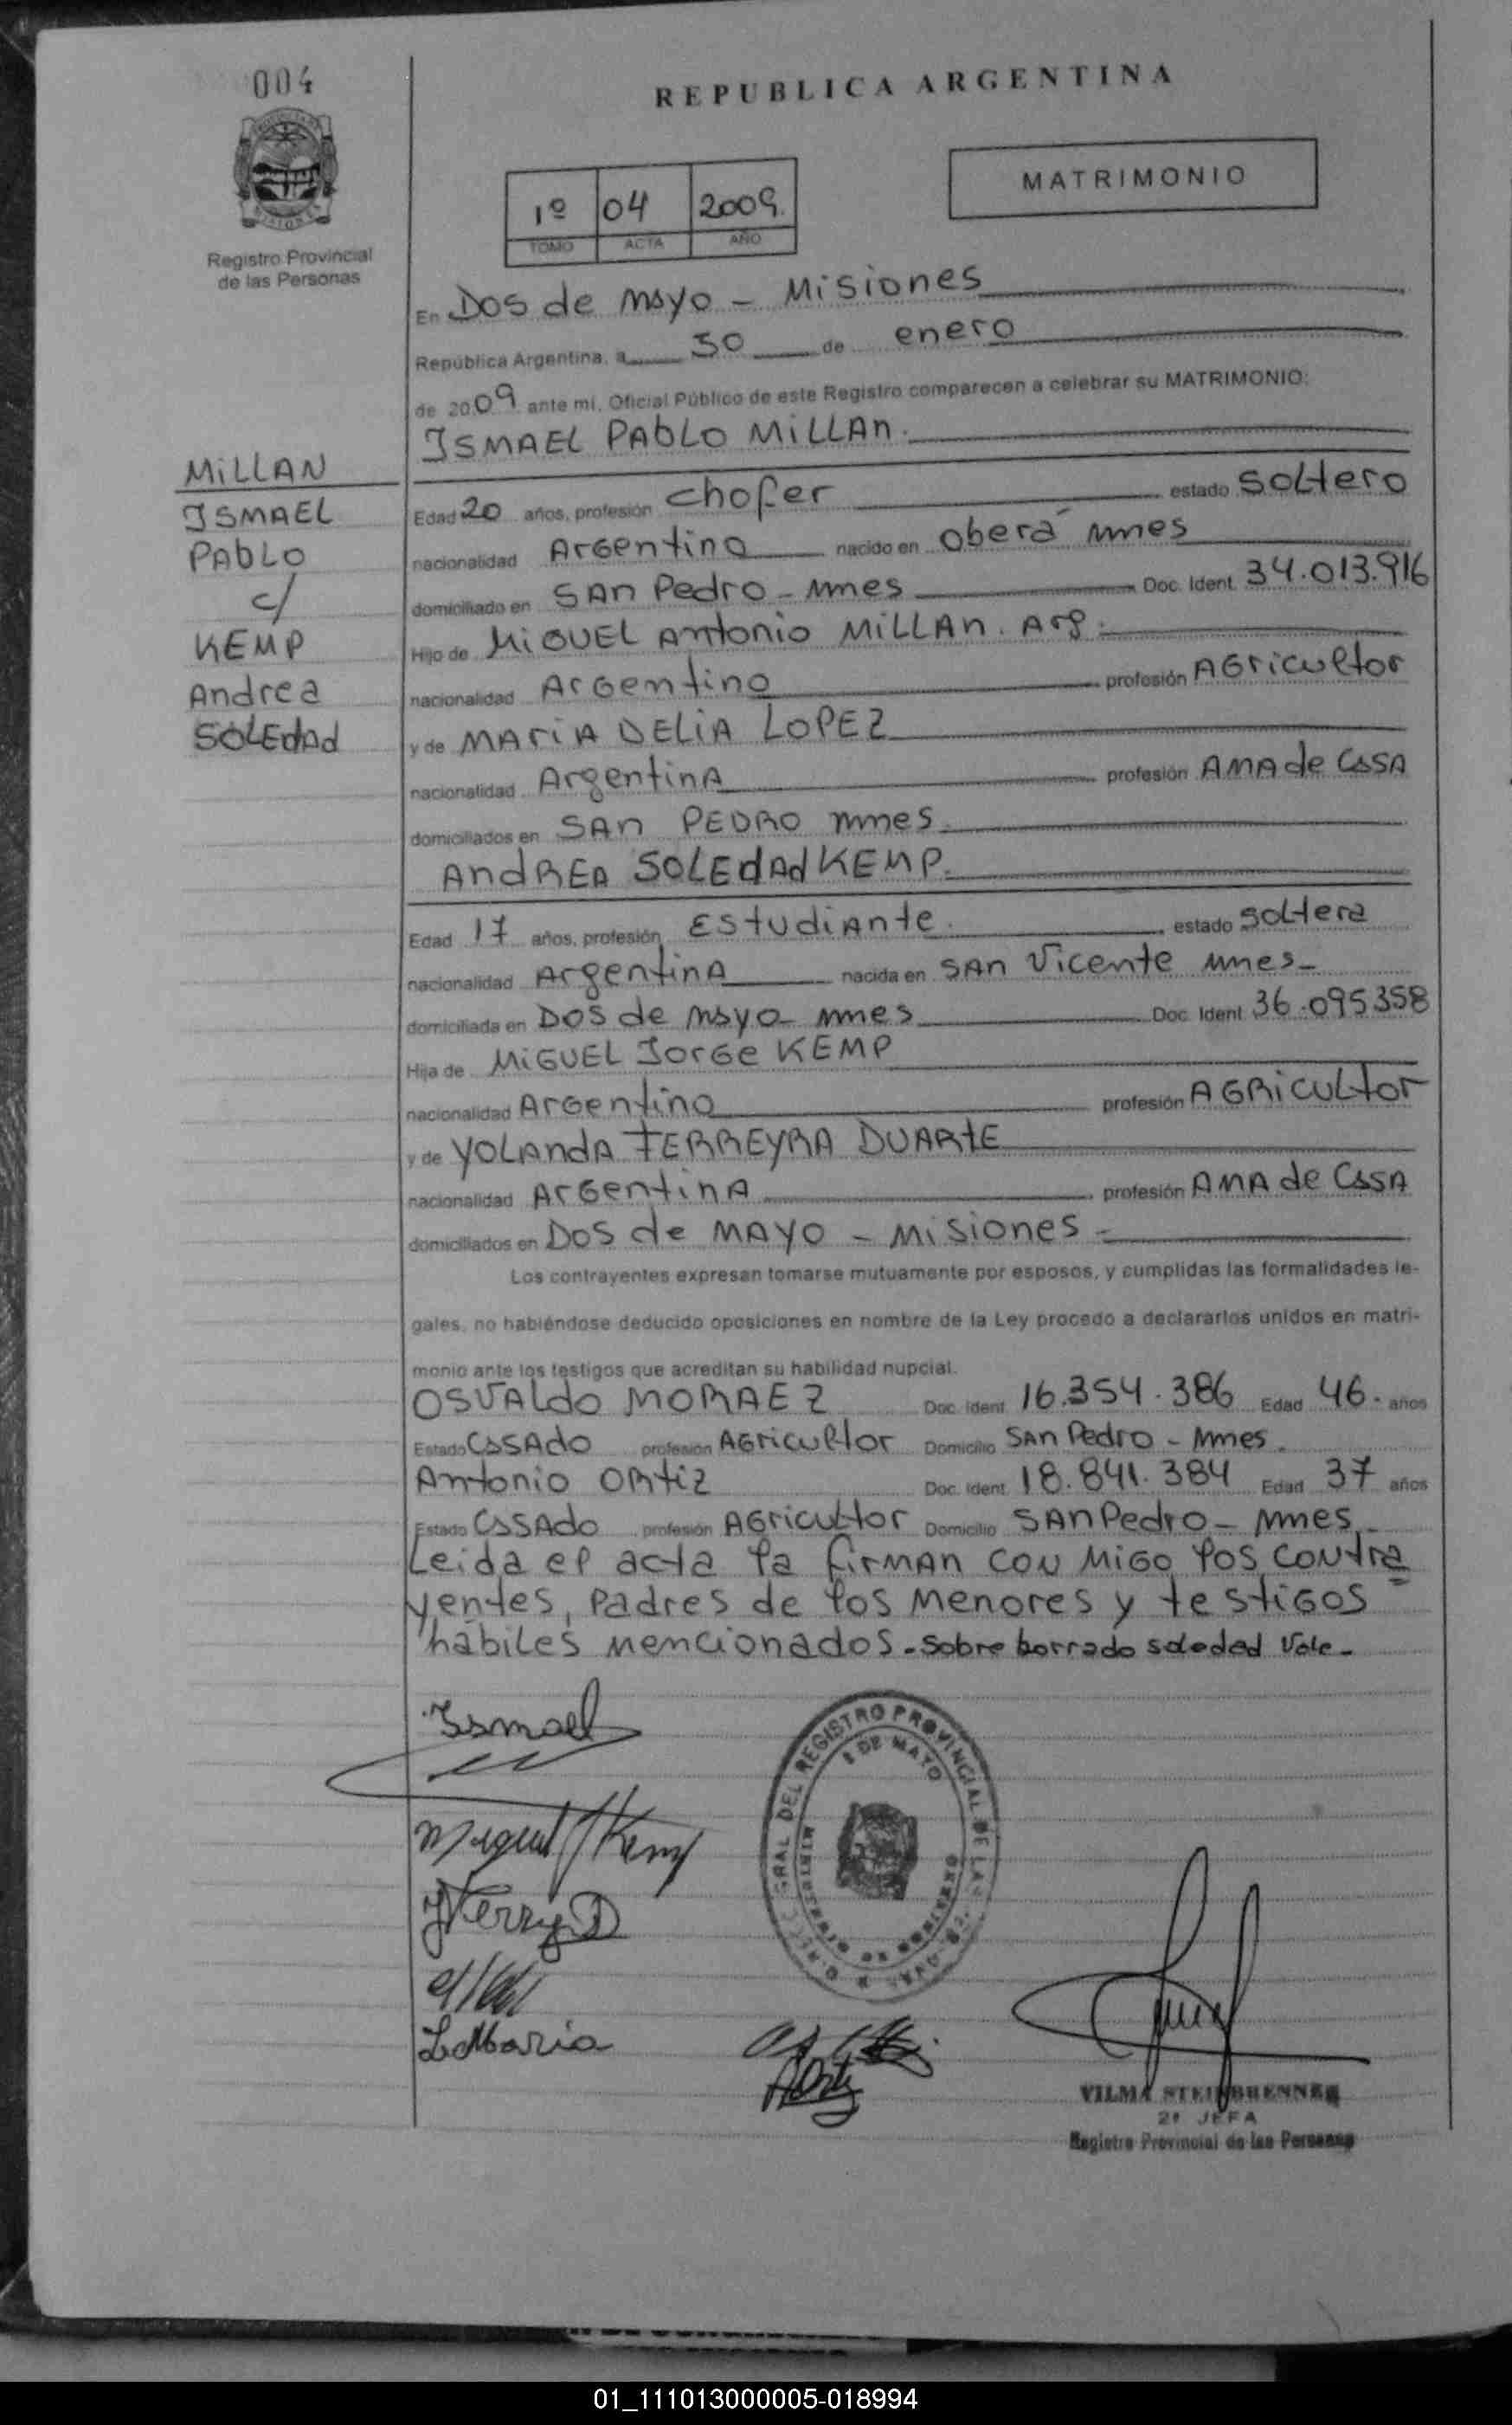 004
REPUBLICA ARGENTINA
MATRIMONIO
1º 04 2009.
TOMO ACTA AÑO
Registro Provincial
de las Personas
En Dos de mayo - Misiones
República Argentina, a 30 de enero
de 2009 ante mi, Oficial Público de este Registro comparecen a celebrar su MATRIMONIO:
ISMAEL PAbLO MiLLAn.
MiLLAN
ISMAEL
PAbLO
c/
KEMP
Andrea
SOLEdAd
Edad 20 años, profesión chofer estado soltero
nacionalidad Argentino nacido en Oberá mnes
domiciliado en SAn Pedro - mnes Doc. Ident. 34.013.916
Hijo de MiGUEL Antonio MiLLAn. Arg.
nacionalidad Argentino profesión AGricultor
y de MAriA DELiA LOPEZ
nacionalidad ArgentinA profesión AMA de CasA
domiciliados en SAn PEDRO mnes.
AndREA SOLEdAd KEMP.
Edad 17 años, profesión EstudiAnte. estado soltera
nacionalidad ArgentinA nacida en SAn Vicente mnes-
domiciliada en DOS de mayo - mnes Doc. Ident. 36.095358
Hija de MiGUEL JorGe KEMP
nacionalidad ArGentino profesión AGRiCULtor
y de YOLAndA FERREYRA DUARtE
nacionalidad ArGentinA profesión AMA de CasA
domiciliados en Dos de MAYO - Misiones -
Los contrayentes expresan tomarse mutuamente por esposos, y cumplidas las formalidades le-
gales, no habiéndose deducido oposiciones en nombre de la Ley procedo a declararlos unidos en matri-
monio ante los testigos que acreditan su habilidad nupcial.
OSVALdo MORAEZ Doc. Ident. 16.354.386 Edad 46. años
Estado CasAdo profesión AGricultor Domicilio SAn Pedro - Mnes.
Antonio ORtiz Doc. Ident. 18.841.384 Edad 37 años
Estado CasAdo profesión AGricultor Domicilio SAn Pedro - mnes.
Leida el acta la firMAN CON MiGO los contra
yentes, Padres de los Menores y testiGos
habiles mencionados. Sobre borrado soledad Vale-
Ismael
Miguel J Kemp
L Maria
AOrtiz
REGISTRO PROVINCIAL DE LAS
DOS DE MAYO
MINISTERIO DE GOBIERNO
VILMA STEINBRENNER
2ª JEFA
Registro Provincial de las Personas
01_111013000005-018994